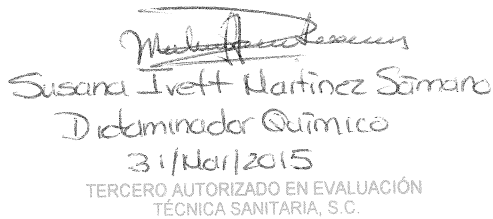 Susana Ivett Martinez Sámano
Dictaminador Químico
31/Mar/2015
TERCERO AUTORIZADO EN EVALUACIÓN
TÉCNICA SANITARIA, S.C.